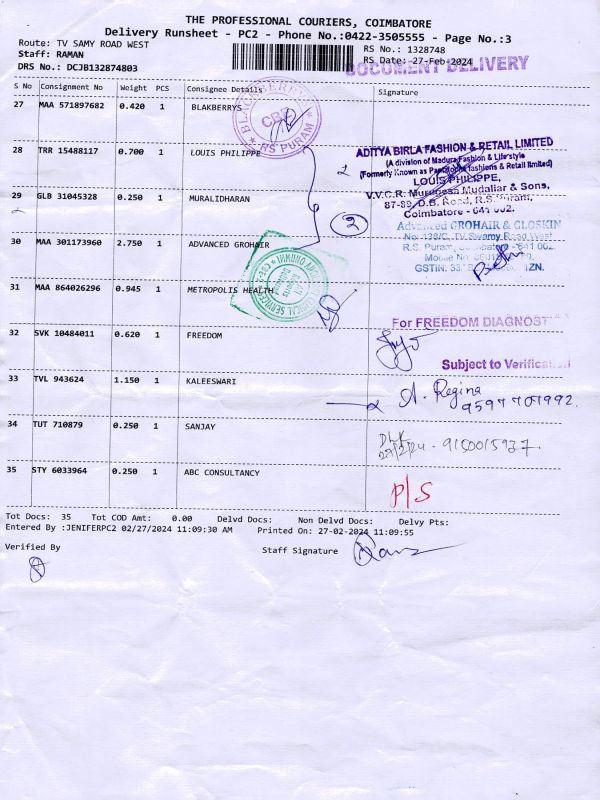 THE PROFESSIONAL COURIERS, COIMBATORE
Delivery Runsheet - PC2 - Phone No.:0422-3505555 - Page No.:3
Route: TV SAMY ROAD WEST
Staff: RAMAN
DRS No.: DCJB132874803
RS No.: 1328748
RS Date.: 27-Feb-2024
DOCUMENT DELIVERY
S No Consignment No Weight PCS Consignee Details Signature
27 MAA 571897682 0.420 1 BLAKBERRYS
RS PURAM
28 TRR 15488117 0.700 1 LOUIS PHILIPPE
ADITYA BIRLA FASHION & RETAIL LIMITED
(A division of Madura Fashion & Lifestyle
(Formerly Known as Pantaloons fashions & Retail limited)
LOUIS PHILIPPE,
V.V.C.R. Murugesa Mudaliar & Sons,
87-89, D.B. Road, R.S. Puram,
Coimbatore - 641 002.
29 GLB 31045328 0.250 1 MURALIDHARAN
2
Advanced GROHAIR & GLOSKIN
No: 138/C, TV Swamy Road West
R.S. Puram, Coimbatore - 641 002
Mobile No:
GSTIN: 33
30 MAA 301173960 2.750 1 ADVANCED GROHAIR
31 MAA 864026296 0.945 1 METROPOLIS HEALTH
For FREEDOM DIAGNOST
32 SVK 10484011 0.620 1 FREEDOM
Subject to Verification
33 TVL 943624 1.150 1 KALEESWARI
A. Regina
9597707992
34 TUT 710879 0.250 1 SANJAY
9150015937
35 STY 6033964 0.250 1 ABC CONSULTANCY
P/S
Tot Docs: 35 Tot COD Amt: 0.00 Delvd Docs: Non Delvd Docs: Delvy Pts:
Entered By :JENIFERPC2 02/27/2024 11:09:30 AM Printed On: 27-02-2024 11:09:55
Verified By Staff Signature